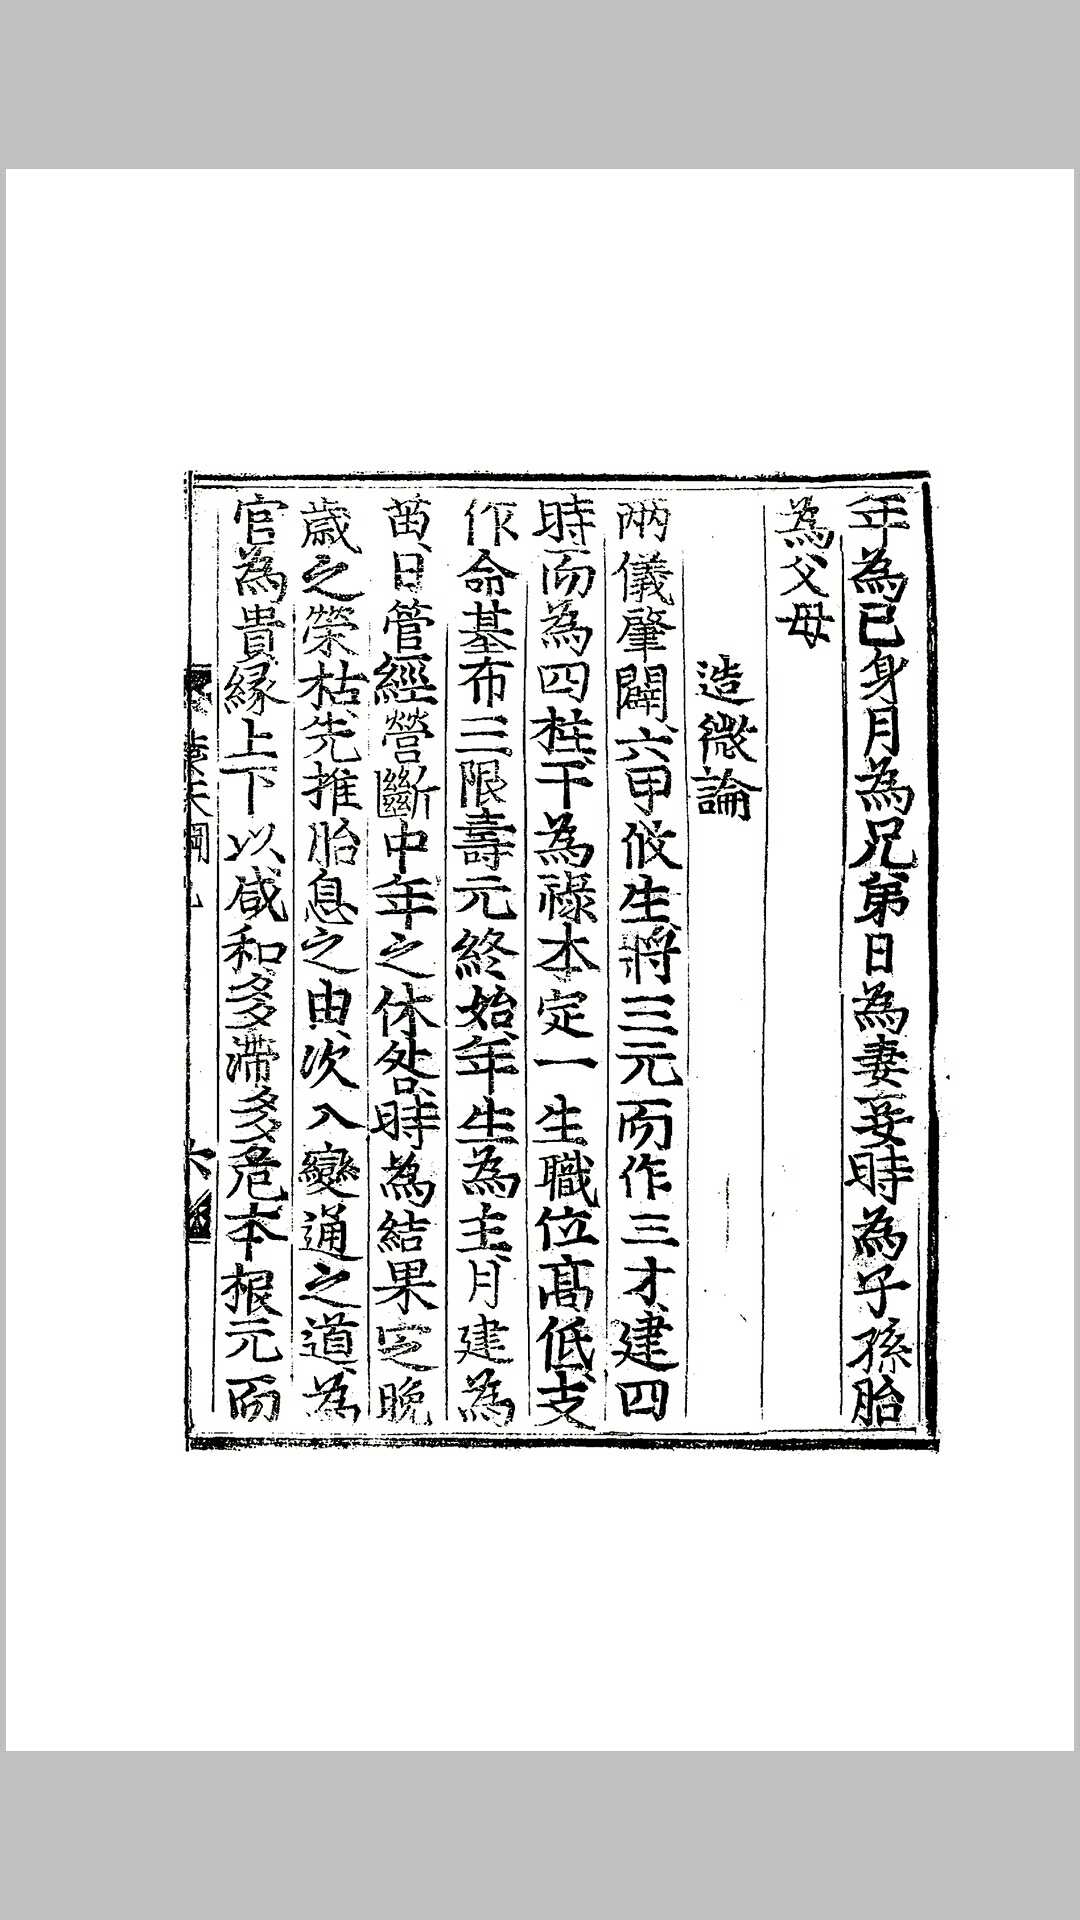 年為已身月為兄弟日為妻妾時為子孫胎
為父母
造微論
兩儀肇闢六甲攸生將三元而作三才建四
時而為四柱干為祿本定一生職位高低支
作命基布三限壽元終始年生為主月建為
苗日管經營斷中年之休咎時為結果定晚
歲之榮枯先推胎息之由次入變通之道為
官為貴緣上下以咸和多滯多危本根元而